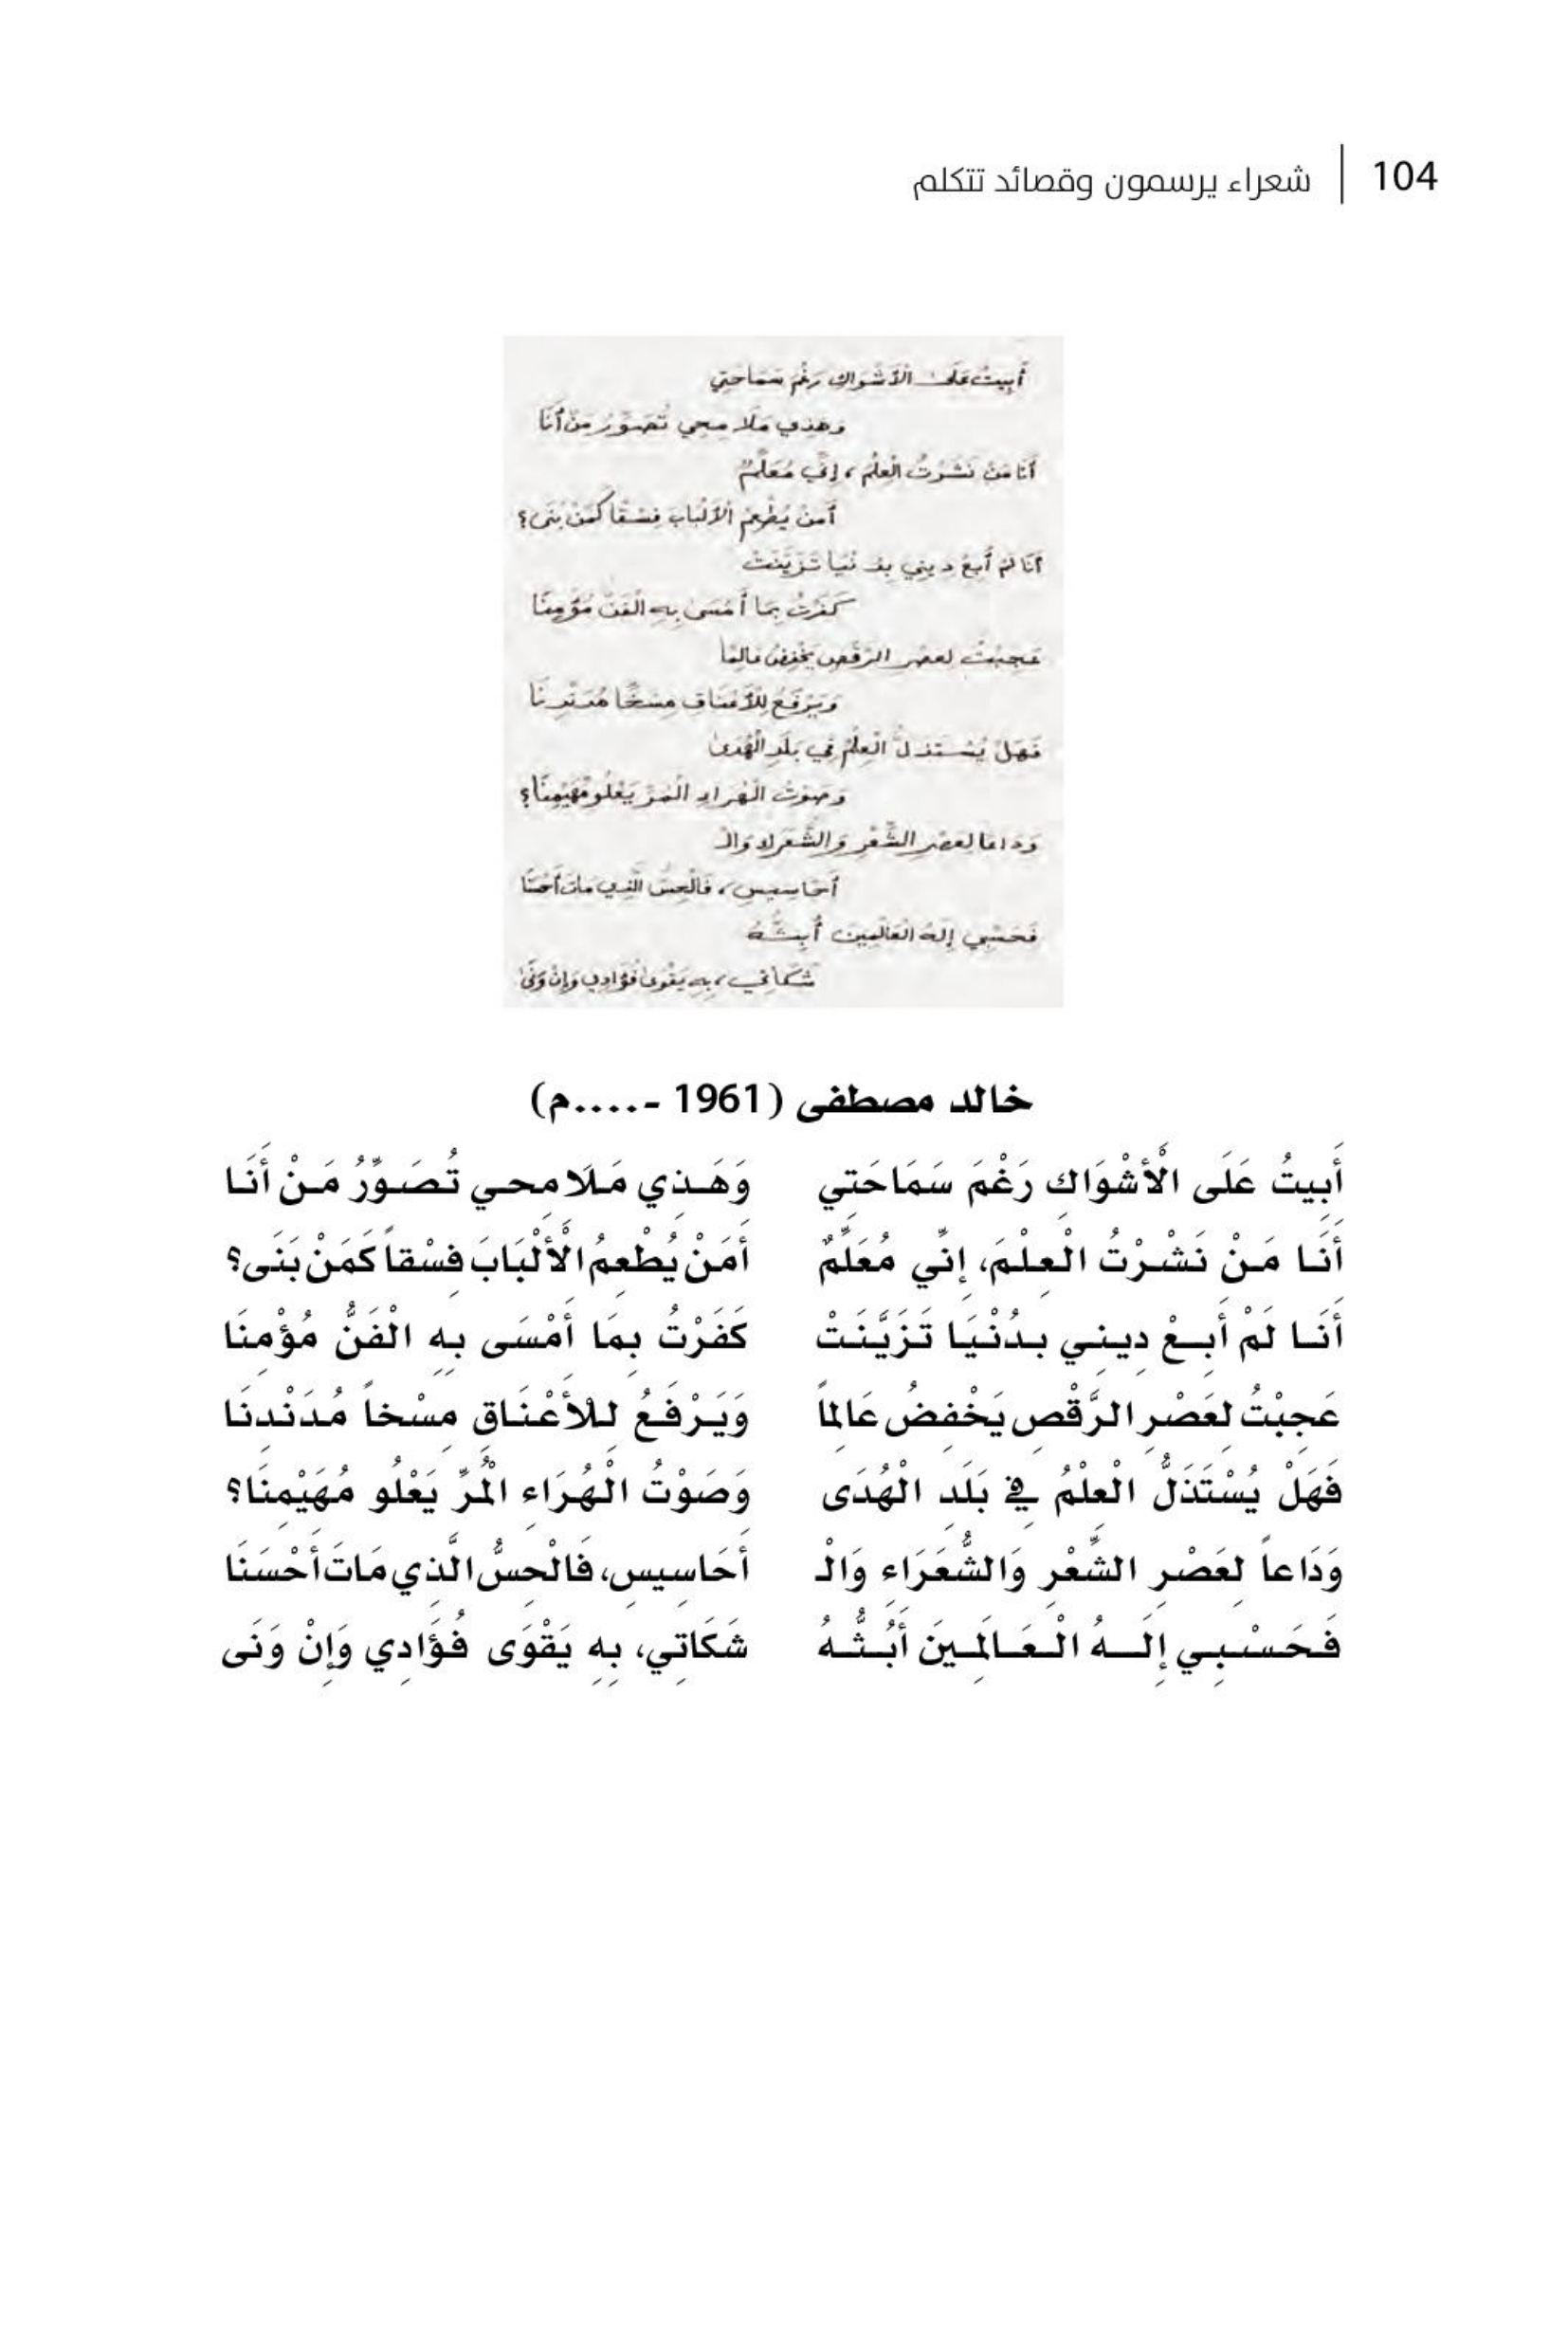 104 | شعراء يرسمون وقصائد تتكلم
أَبِيتُ عَلَى الْأَشْوَاكِ رَغْمَ سَمَاحَتِي
وَهَذِي مَلَامِحِي تُصَوِّرُ مَنْ أَنَا
أَنَا مَنْ نَشَرْتُ الْعِلْمَ، إِنِّي مُعَلِّمٌ
أَمَنْ يُطْعِمُ الْأَلْبَابَ فِسْقًا كَمَنْ بَنَى؟
أَنَا لَمْ أَبِعْ دِينِي بِدُنْيَا تَزَيَّنَتْ
كَفَرْتُ بِمَا أَمْسَى بِهِ الْفَنُّ مُؤْمِنًا
عَجِبْتُ لِعَصْرِ الرَّقْصِ يَخْفِضُ عَالِمًا
وَيَرْفَعُ لِلْأَعْنَاقِ مِسْخًا مُدَنْدِنَا
فَهَلْ يُسْتَذَلُّ الْعِلْمُ فِي بَلَدِ الْهُدَى
وَصَوْتُ الْهُرَاءِ الْمُرِّ يَعْلُو مُهَيْمِنًا؟
وَدَاعًا لِعَصْرِ الشِّعْرِ وَالشُّعَرَاءِ وَالْـ
أَحَاسِيسِ، فَالْحِسُّ الَّذِي مَاتَ أَحْسَنَا
فَحَسْبِي إِلَهُ الْعَالَمِينَ أَبُثُّهُ
شَكَاتِي، بِهِ يَقْوَى فُؤَادِي وَإِنْ وَنَى
خالد مصطفى (1961 -....م)
أَبِيتُ عَلَى الْأَشْوَاكِ رَغْمَ سَمَاحَتِي وَهَذِي مَلَامِحِي تُصَوِّرُ مَنْ أَنَا
أَنَا مَنْ نَشَرْتُ الْعِلْمَ، إِنِّي مُعَلِّمٌ أَمَنْ يُطْعِمُ الْأَلْبَابَ فِسْقاً كَمَنْ بَنَى؟
أَنَا لَمْ أَبِعْ دِينِي بِدُنْيَا تَزَيَّنَتْ كَفَرْتُ بِمَا أَمْسَى بِهِ الْفَنُّ مُؤْمِنَا
عَجِبْتُ لِعَصْرِ الرَّقْصِ يَخْفِضُ عَالِماً وَيَرْفَعُ لِلْأَعْنَاقِ مِسْخاً مُدَنْدِنَا
فَهَلْ يُسْتَذَلُّ الْعِلْمُ فِي بَلَدِ الْهُدَى وَصَوْتُ الْهُرَاءِ الْمُرِّ يَعْلُو مُهَيْمِنَا؟
وَدَاعاً لِعَصْرِ الشِّعْرِ وَالشُّعَرَاءِ وَالْـ أَحَاسِيسِ، فَالْحِسُّ الَّذِي مَاتَ أَحْسَنَا
فَحَسْبِي إِلَهُ الْعَالَمِينَ أَبُثُّهُ شَكَاتِي، بِهِ يَقْوَى فُؤَادِي وَإِنْ وَنَى